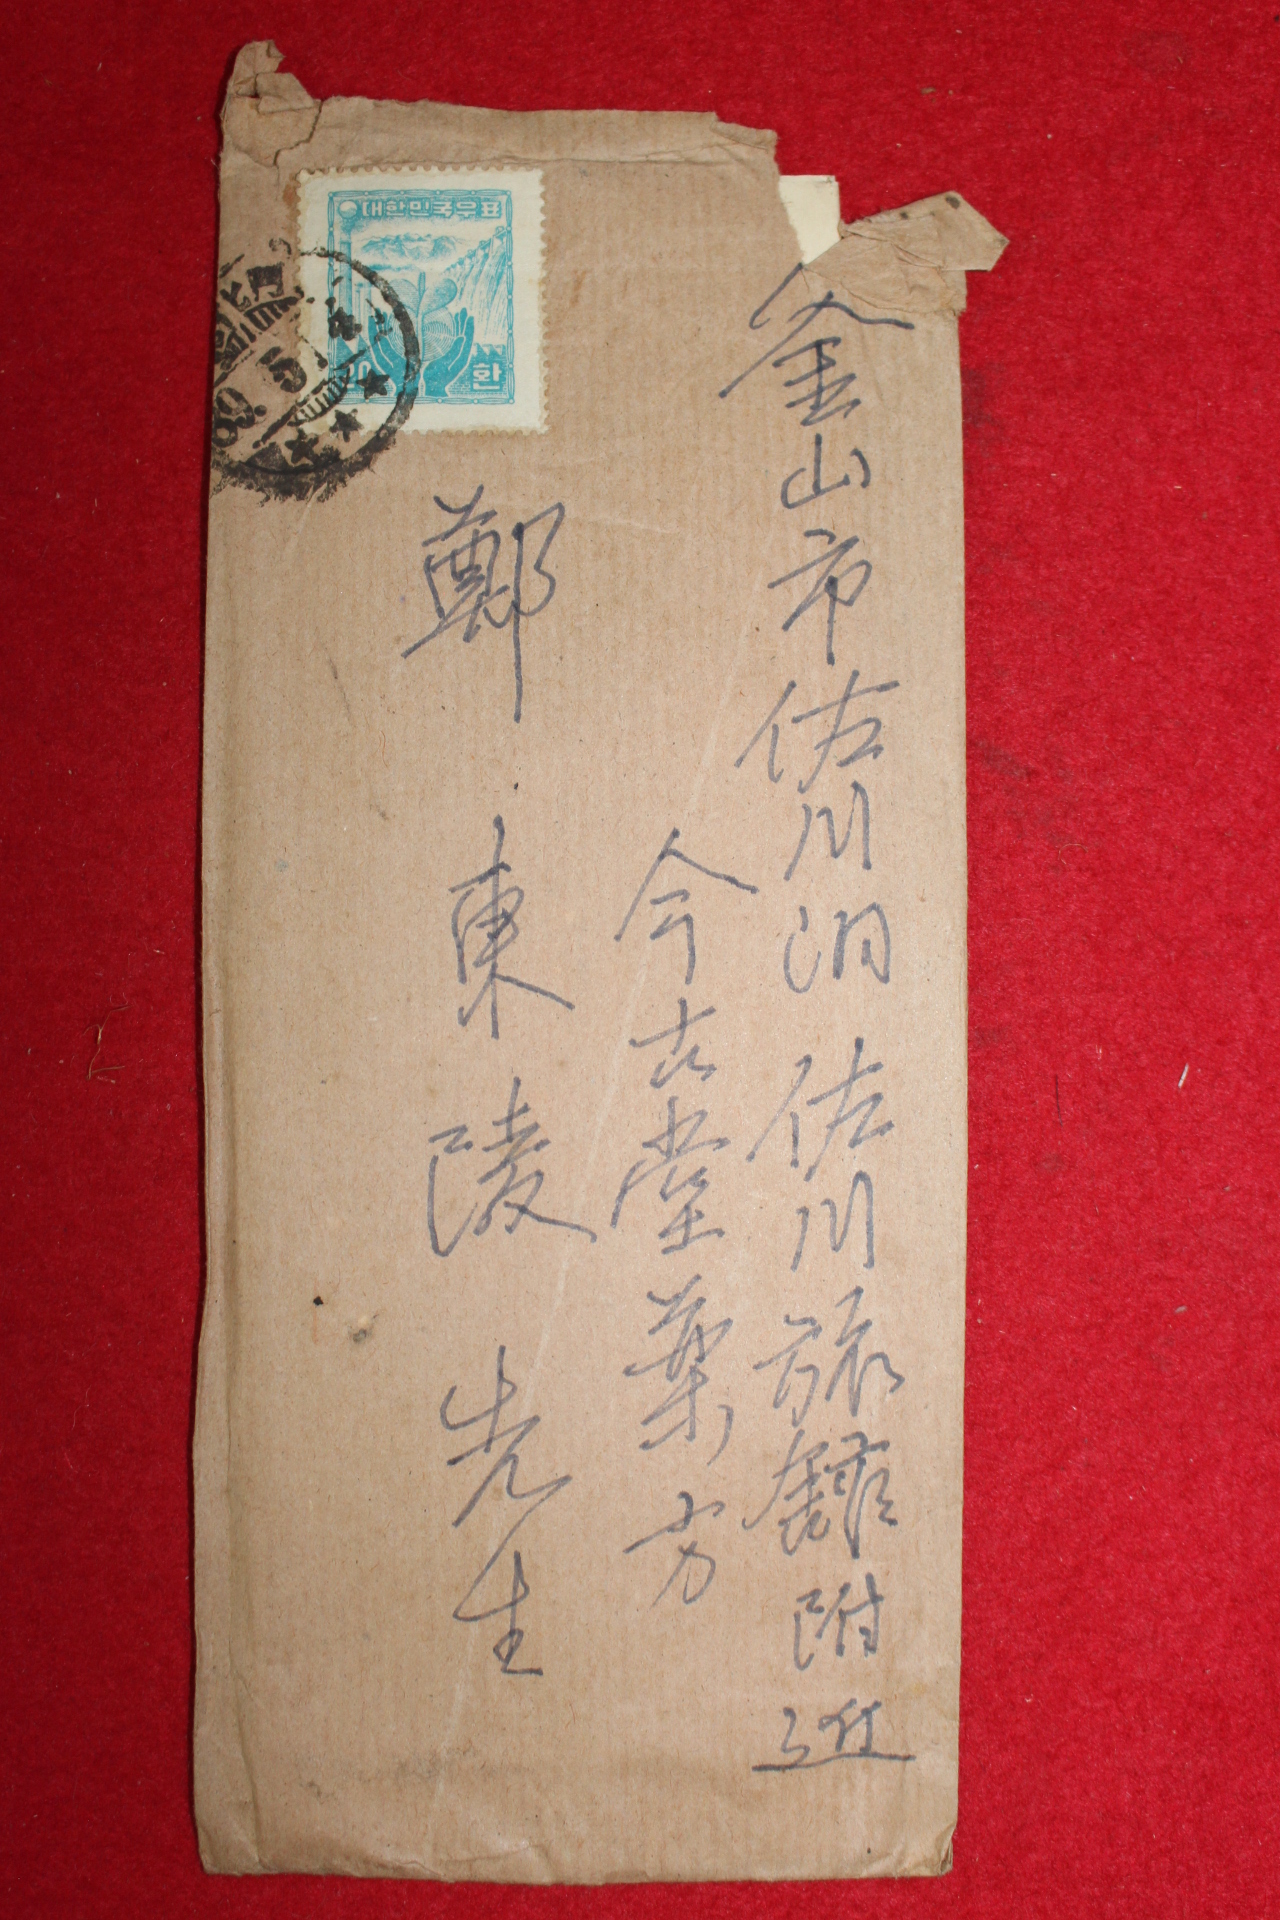 釜山市佐川洞佐川旅館附近
今古堂薬方
鄭東陵先生
대한민국우표
20환
89. 5.